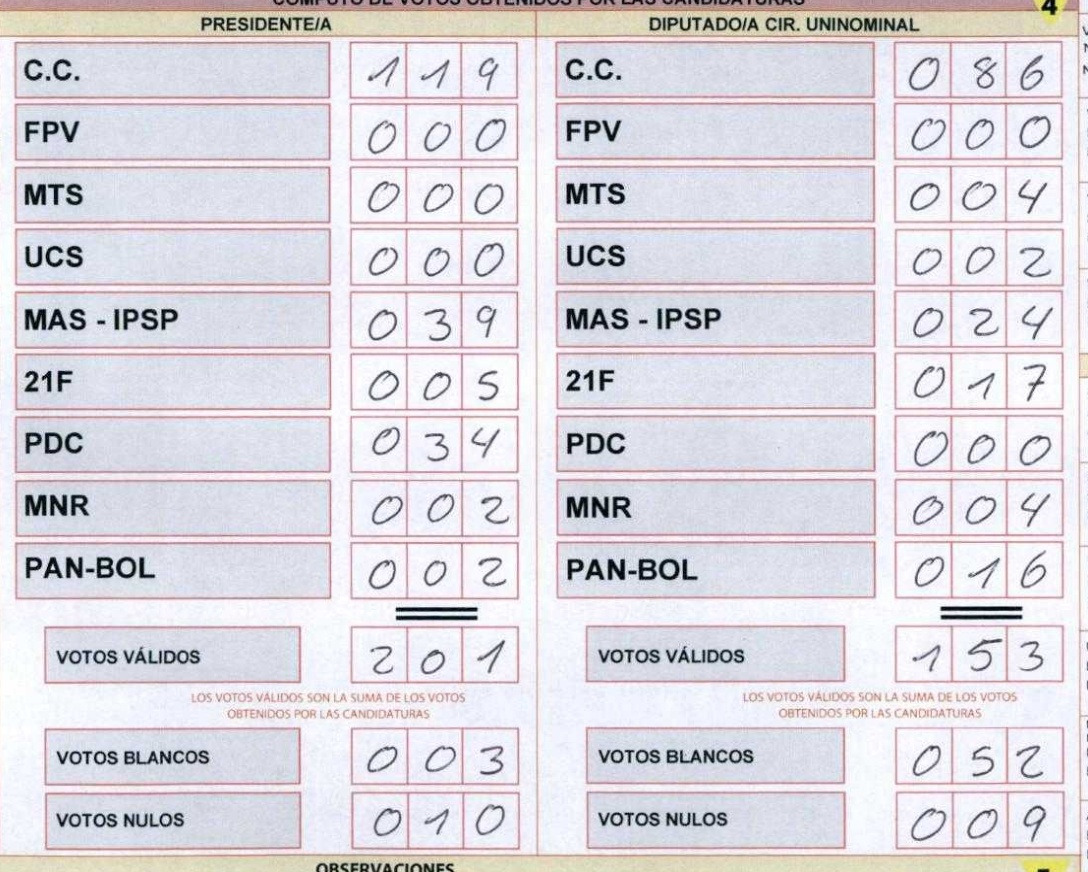 CÓMPUTO DE VOTOS OBTENIDOS POR LAS CANDIDATURAS 4
PRESIDENTE/A
C.C. 1 1 9
FPV 0 0 0
MTS 0 0 0
UCS 0 0 0
MAS - IPSP 0 3 9
21F 0 0 5
PDC 0 3 4
MNR 0 0 2
PAN-BOL 0 0 2
VOTOS VÁLIDOS 2 0 1
LOS VOTOS VÁLIDOS SON LA SUMA DE LOS VOTOS
OBTENIDOS POR LAS CANDIDATURAS
VOTOS BLANCOS 0 0 3
VOTOS NULOS 0 1 0
DIPUTADO/A CIR. UNINOMINAL
C.C. 0 8 6
FPV 0 0 0
MTS 0 0 4
UCS 0 0 2
MAS - IPSP 0 2 4
21F 0 1 7
PDC 0 0 0
MNR 0 0 4
PAN-BOL 0 1 6
VOTOS VÁLIDOS 1 5 3
LOS VOTOS VÁLIDOS SON LA SUMA DE LOS VOTOS
OBTENIDOS POR LAS CANDIDATURAS
VOTOS BLANCOS 0 5 2
VOTOS NULOS 0 0 9
OBSERVACIONES 5